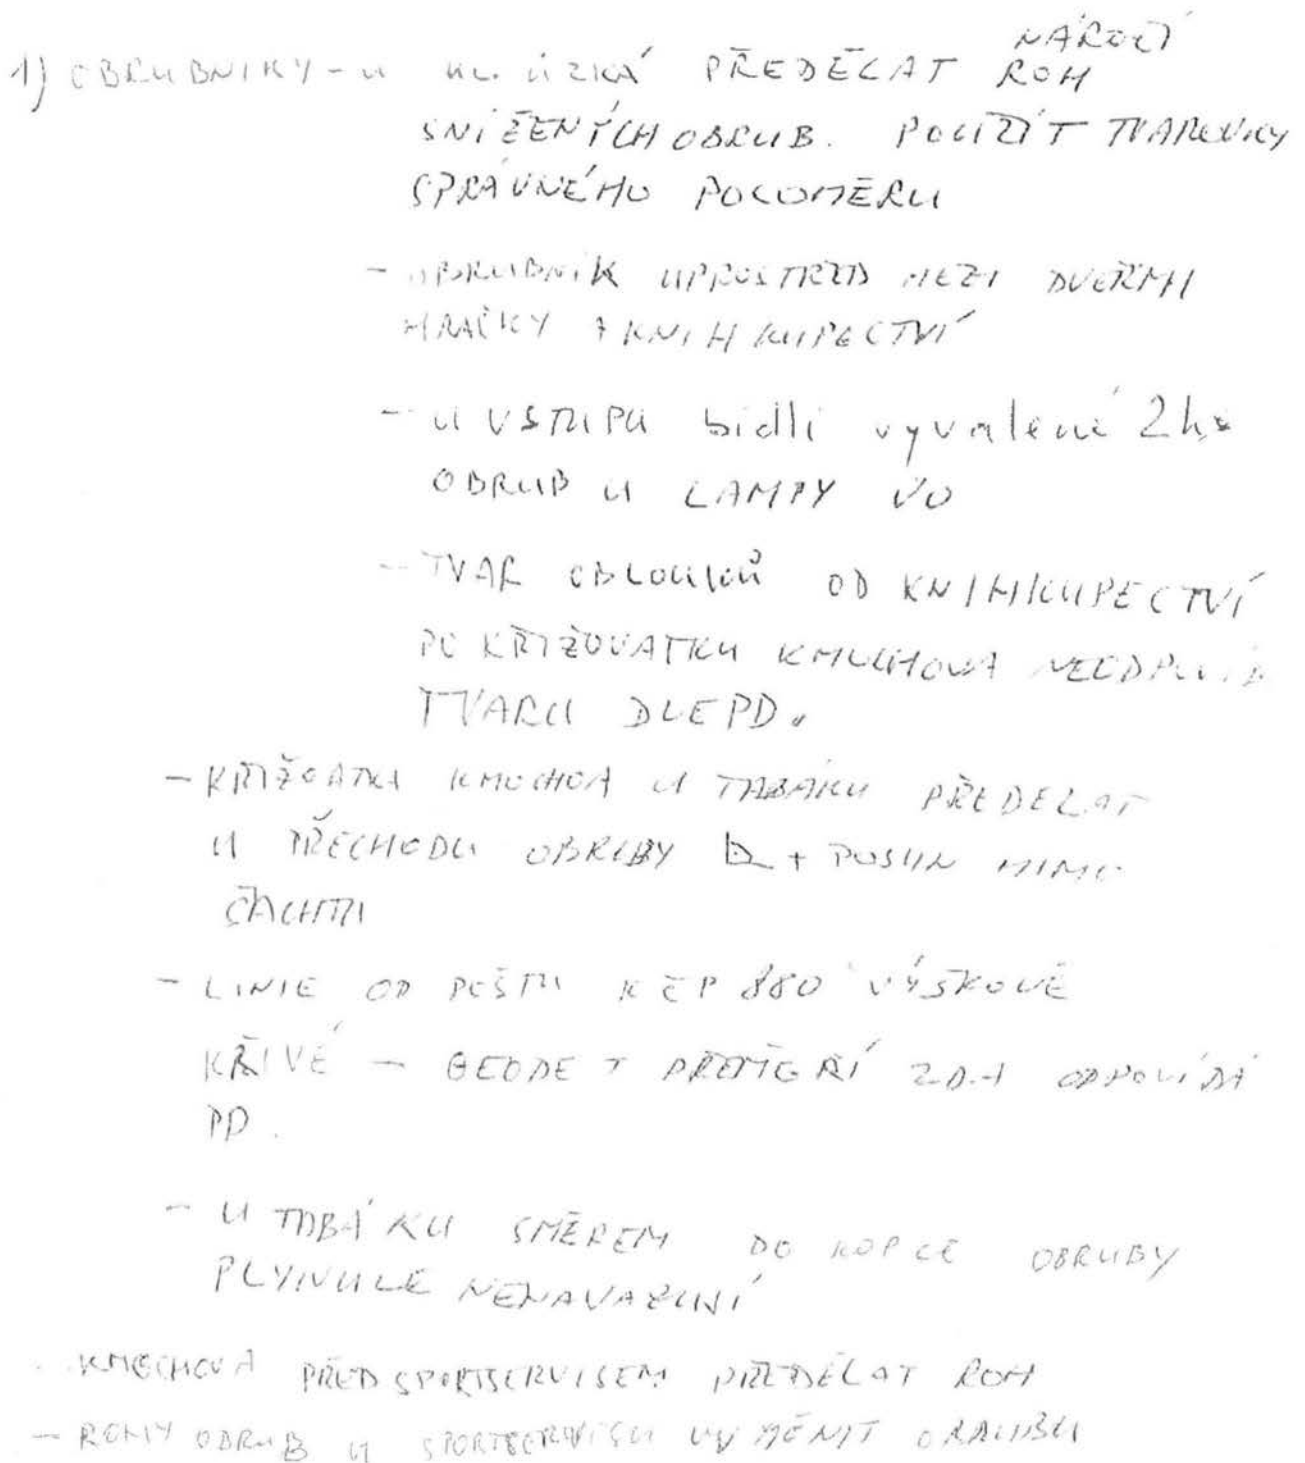 1) OBRUBNIKY - U UL. ÚZKÁ PŘEDĚLAT NÁROŽÍ ROH
SNÍŽENÝCH OBRUB. POUŽÍT TVAROVKY
SPRÁVNÉHO POLOMĚRU
- OBRUBNÍK UPROSTŘED MEZI DVEŘMI
HRAČKY A KNIHKUPECTVÍ
- U VSTUPU bidli vyvalené 2ks
OBRUB U LAMPY VO
- TVAR OBLOUKŮ OD KNIHKUPECTVÍ
PO KŘIŽOVATKU KMOCHOVA NEODPOVÍDÁ
TVARU DLE PD.
- KŘIŽOATKA KMOCHOA U TABÁKU PŘEDELAT
U PŘECHODU OBRUBY + POSUN MIMO
ŠACHTU
- LINIE OD POŠTY K ČP 880 VÝŠKOVĚ
KŘIVÉ - GEODET PŘEMĚŘÍ ZDA ODPOVÍDÁ
PD.
- U TABÁKU SMĚREM DO KOPCE OBRUBY
PLYNULE NENAVAZUJÍ
- KMOCHOVA PŘED SPORTSERVISEM PŘEDĚLAT ROH
- ROHY OBRUB U SPORTSERVISU VYMĚNIT OBRUBU